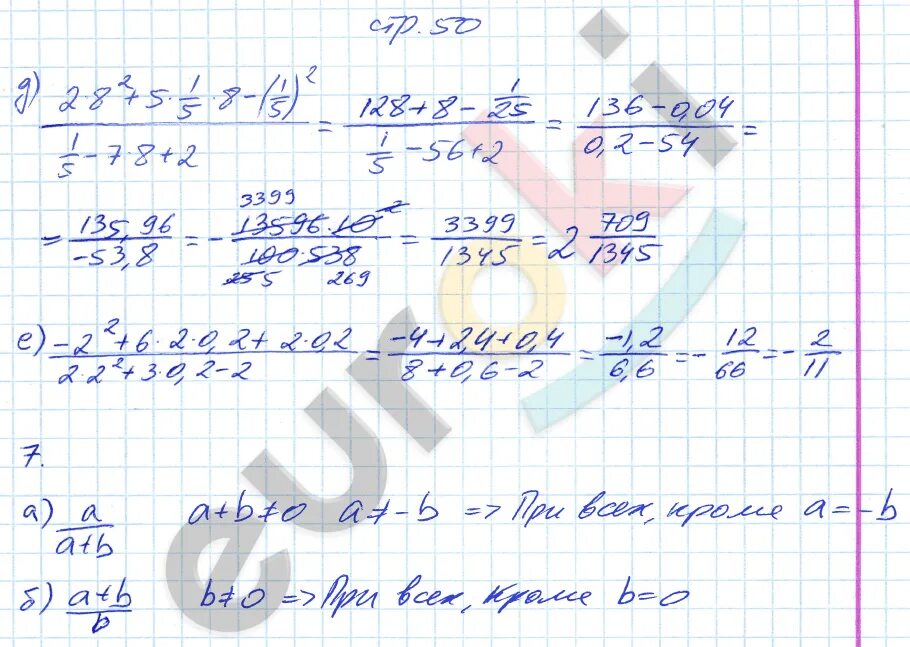 стр. 50
д) (2·8² + 5·1/5·8 − (1/5)²)/(1/5 − 7·8 + 2) = (128 + 8 − 1/25)/(1/5 − 56 + 2) = (136 − 0,04)/(0,2 − 54) =
= 135,96/−53,8 = − (13596·10)/(100·538) 3399 2 25 5 269 = 3399/1345 = 2 709/1345
е) (−2² + 6·2·0,2 + 2·0,2)/(2·2² + 3·0,2 − 2) = (−4 + 2,4 + 0,4)/(8 + 0,6 − 2) = −1,2/6,6 = − 12/66 = − 2/11
7.
а) a/(a+b) a+b≠0 a≠−b => При всех, кроме a=−b
б) (a+b)/b b≠0 => При всех, кроме b=0
euroki